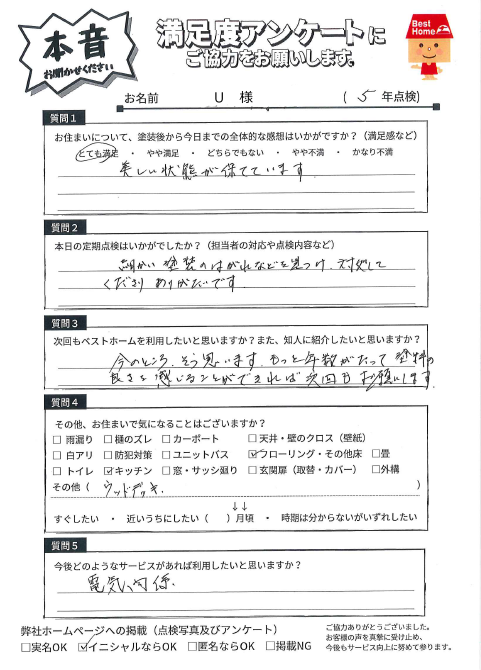 本音
お聞かせください
満足度アンケートに
ご協力をお願いします。
Best Home
お名前 U 様 ( 5 年点検)
質問1
お住まいについて、塗装後から今日までの全体的な感想はいかがですか？（満足感など）
とても満足 ・ やや満足 ・ どちらでもない ・ やや不満 ・ かなり不満
美しい状態が保てています
質問2
本日の定期点検はいかがでしたか？（担当者の対応や点検内容など）
細かい塗装のはがれなどを見つけ、対処して
くださり ありがたいです。
質問3
次回もベストホームを利用したいと思いますか？また、知人に紹介したいと思いますか？
今のところ、そう思います。もっと年数がたって塗料の
良さを感じることができれば次回もお願いします。
質問4
その他、お住まいで気になることはございますか？
□ 雨漏り □ 樋のズレ □ カーポート □ 天井・壁のクロス（壁紙）
□ 白アリ □ 防犯対策 □ ユニットバス ☑フローリング・その他床 □畳
□ トイレ ☑キッチン □ 窓・サッシ廻り □ 玄関扉（取替・カバー） □外構
その他（ ウッドデッキ. ）
↓↓
すぐしたい ・ 近いうちにしたい（ ）月頃 ・ 時期は分からないがいずれしたい
質問5
今後どのようなサービスがあれば利用したいと思いますか？
電気関係.
弊社ホームページへの掲載（点検写真及びアンケート）
□実名OK ☑イニシャルならOK □匿名ならOK □掲載NG
ご協力ありがとうございました。
お客様の声を真摯に受け止め、
今後もサービス向上に努めて参ります。